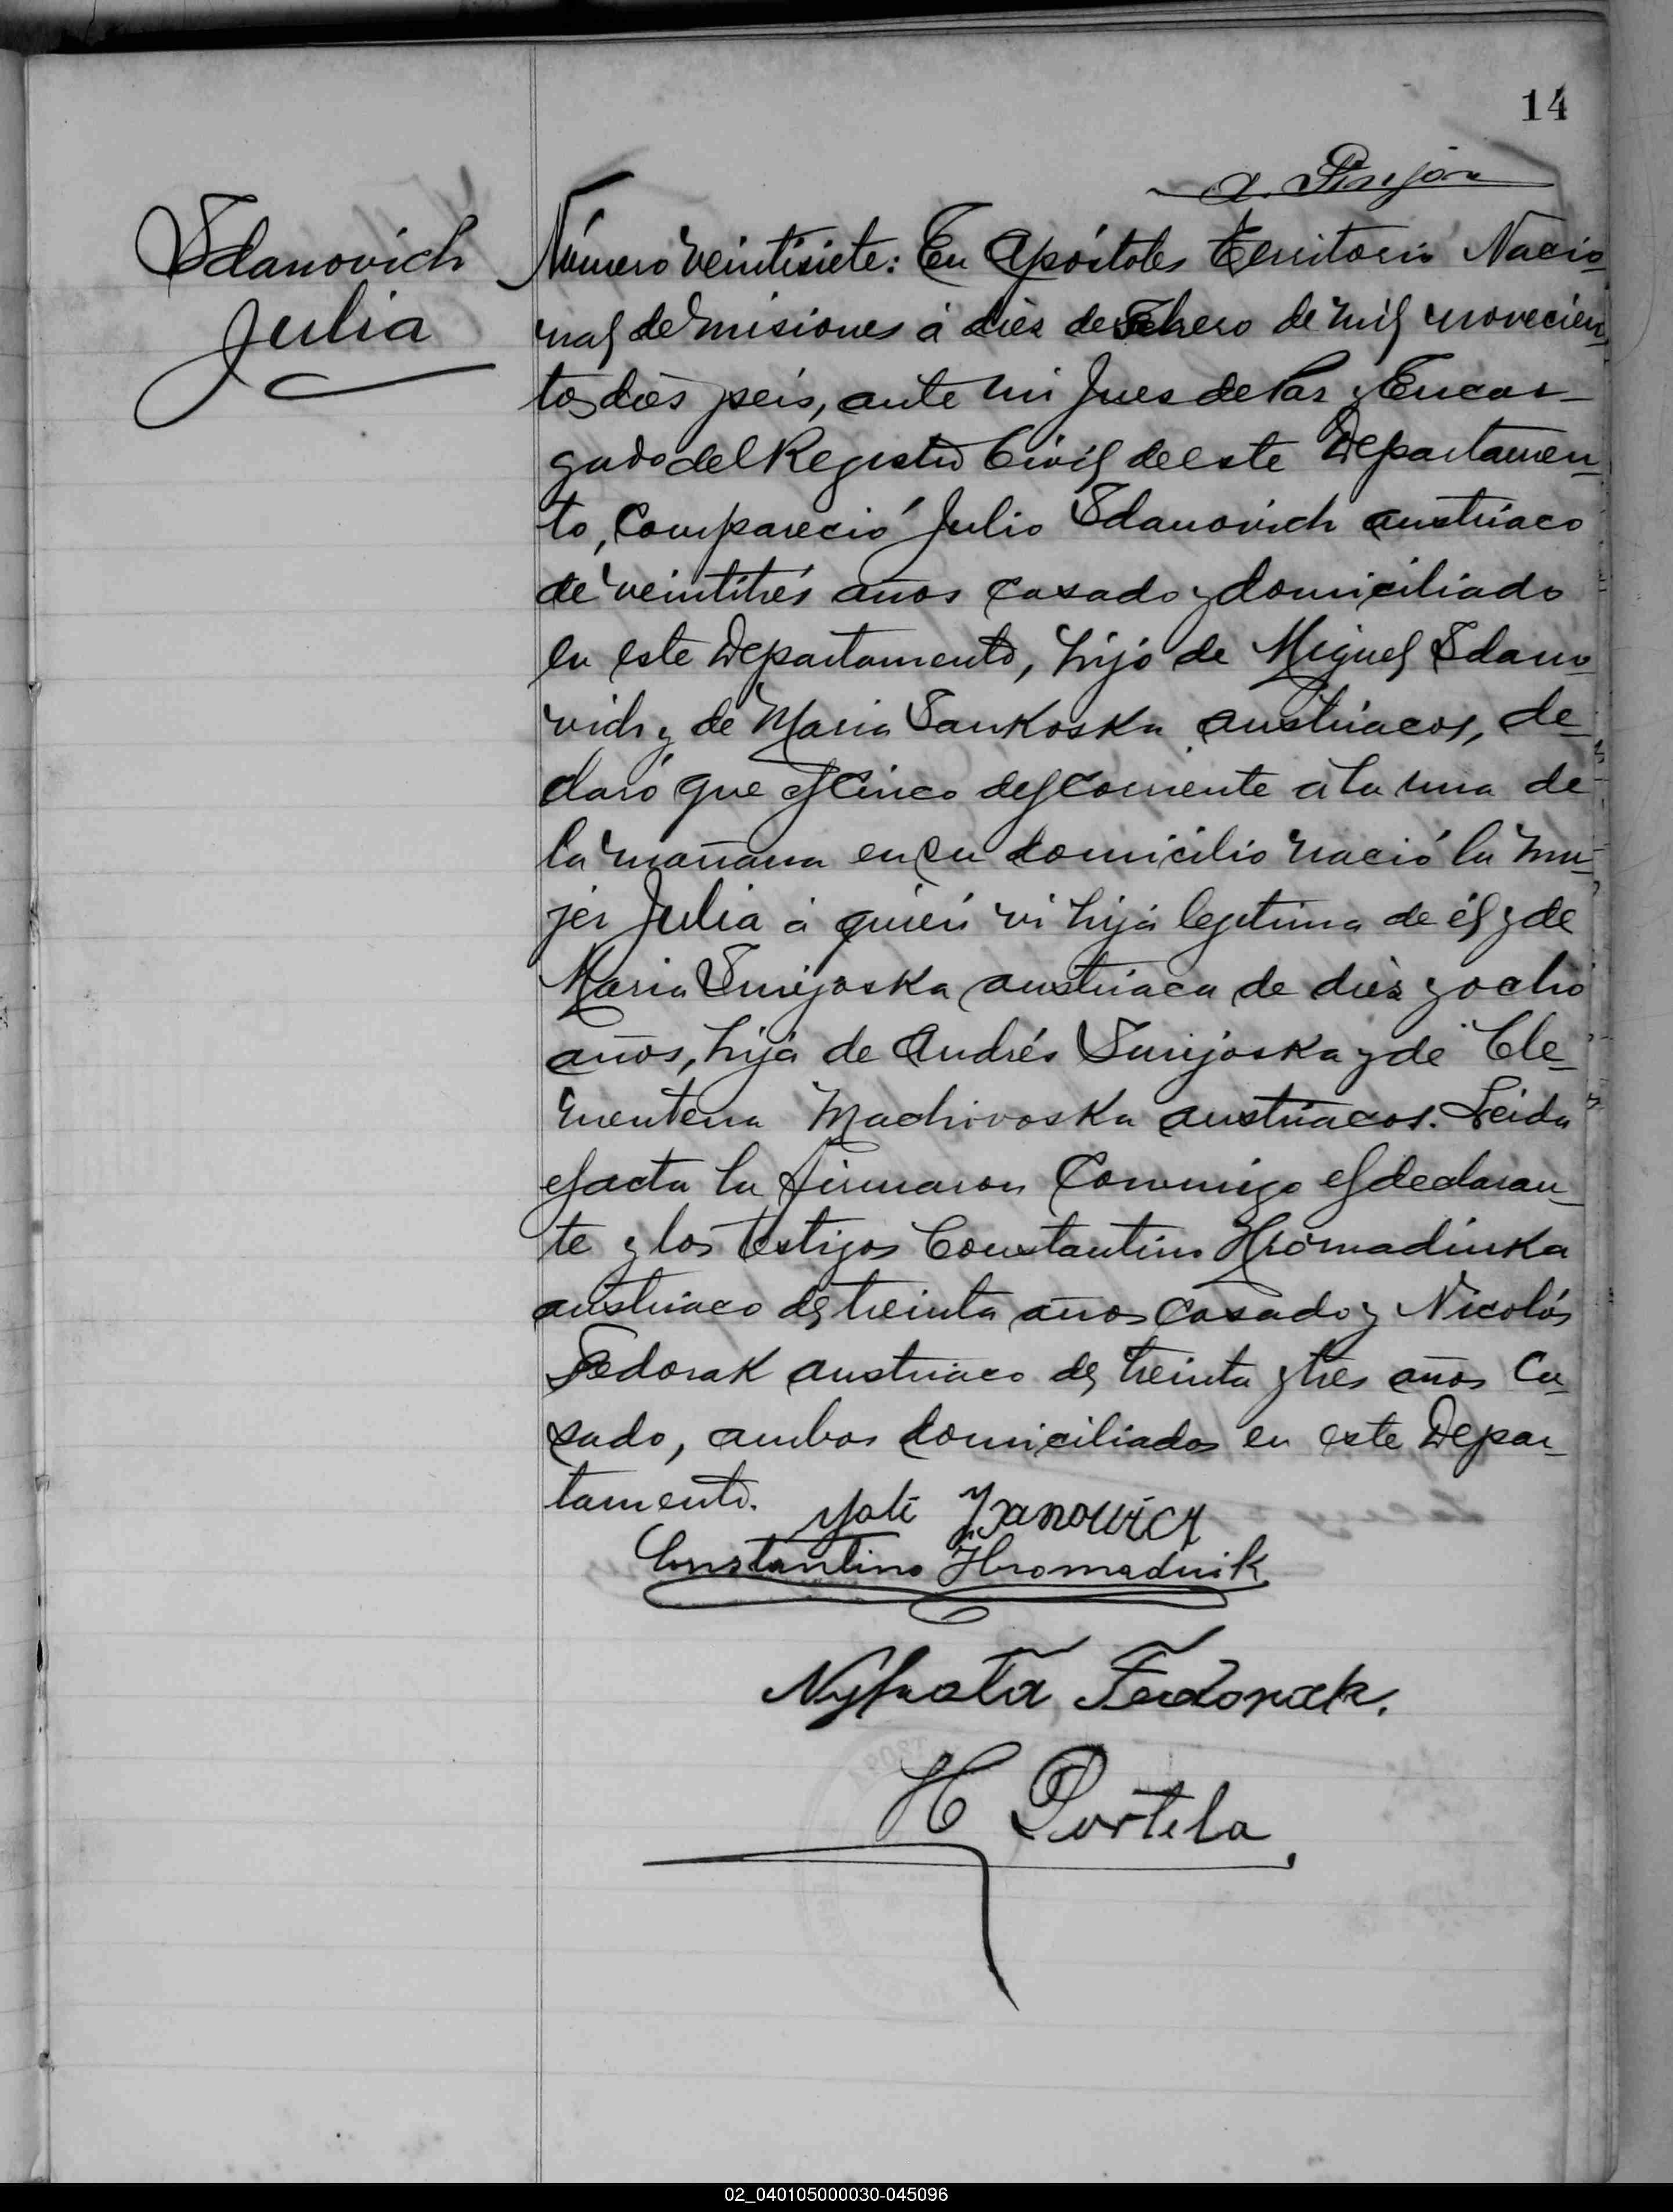 14
Sdanovich
Julia
Número veintisiete: En Apóstoles Territorio Nacio-
nal de Misiones á diez de Febrero de mil novecien-
tos diez y seis, ante mi Juez de Paz y Encar-
gado del Registro Civil de este Departamen-
to, Compareció Julio Sdanovich austriaco
de veintitrés años casado y domiciliado
en este Departamento, hijo de Miguel Sdano-
vich y de Maria Sankoska austriacos, de-
claró que el cinco del corriente á la una de
la mañana en su domicilio nació la mu-
jer Julia á quién vi hija legitima de él y de
Maria Smijoska austriaca de diez y ocho
años, hija de Andrés Smijoska y de Cle-
mentena Machivoska austriacos. Leida
el acta la firmaron conmigo el declaran-
te y los testigos Constantino Hromadiuka
austriaco de treinta años casado y Nicolás
Fedorak austriaco de treinta y tres años ca-
sado, ambos domiciliados en este Depar-
tamento.
Constantino Hromadnik
Fedorak.
H Portela
02_040105000030-045096